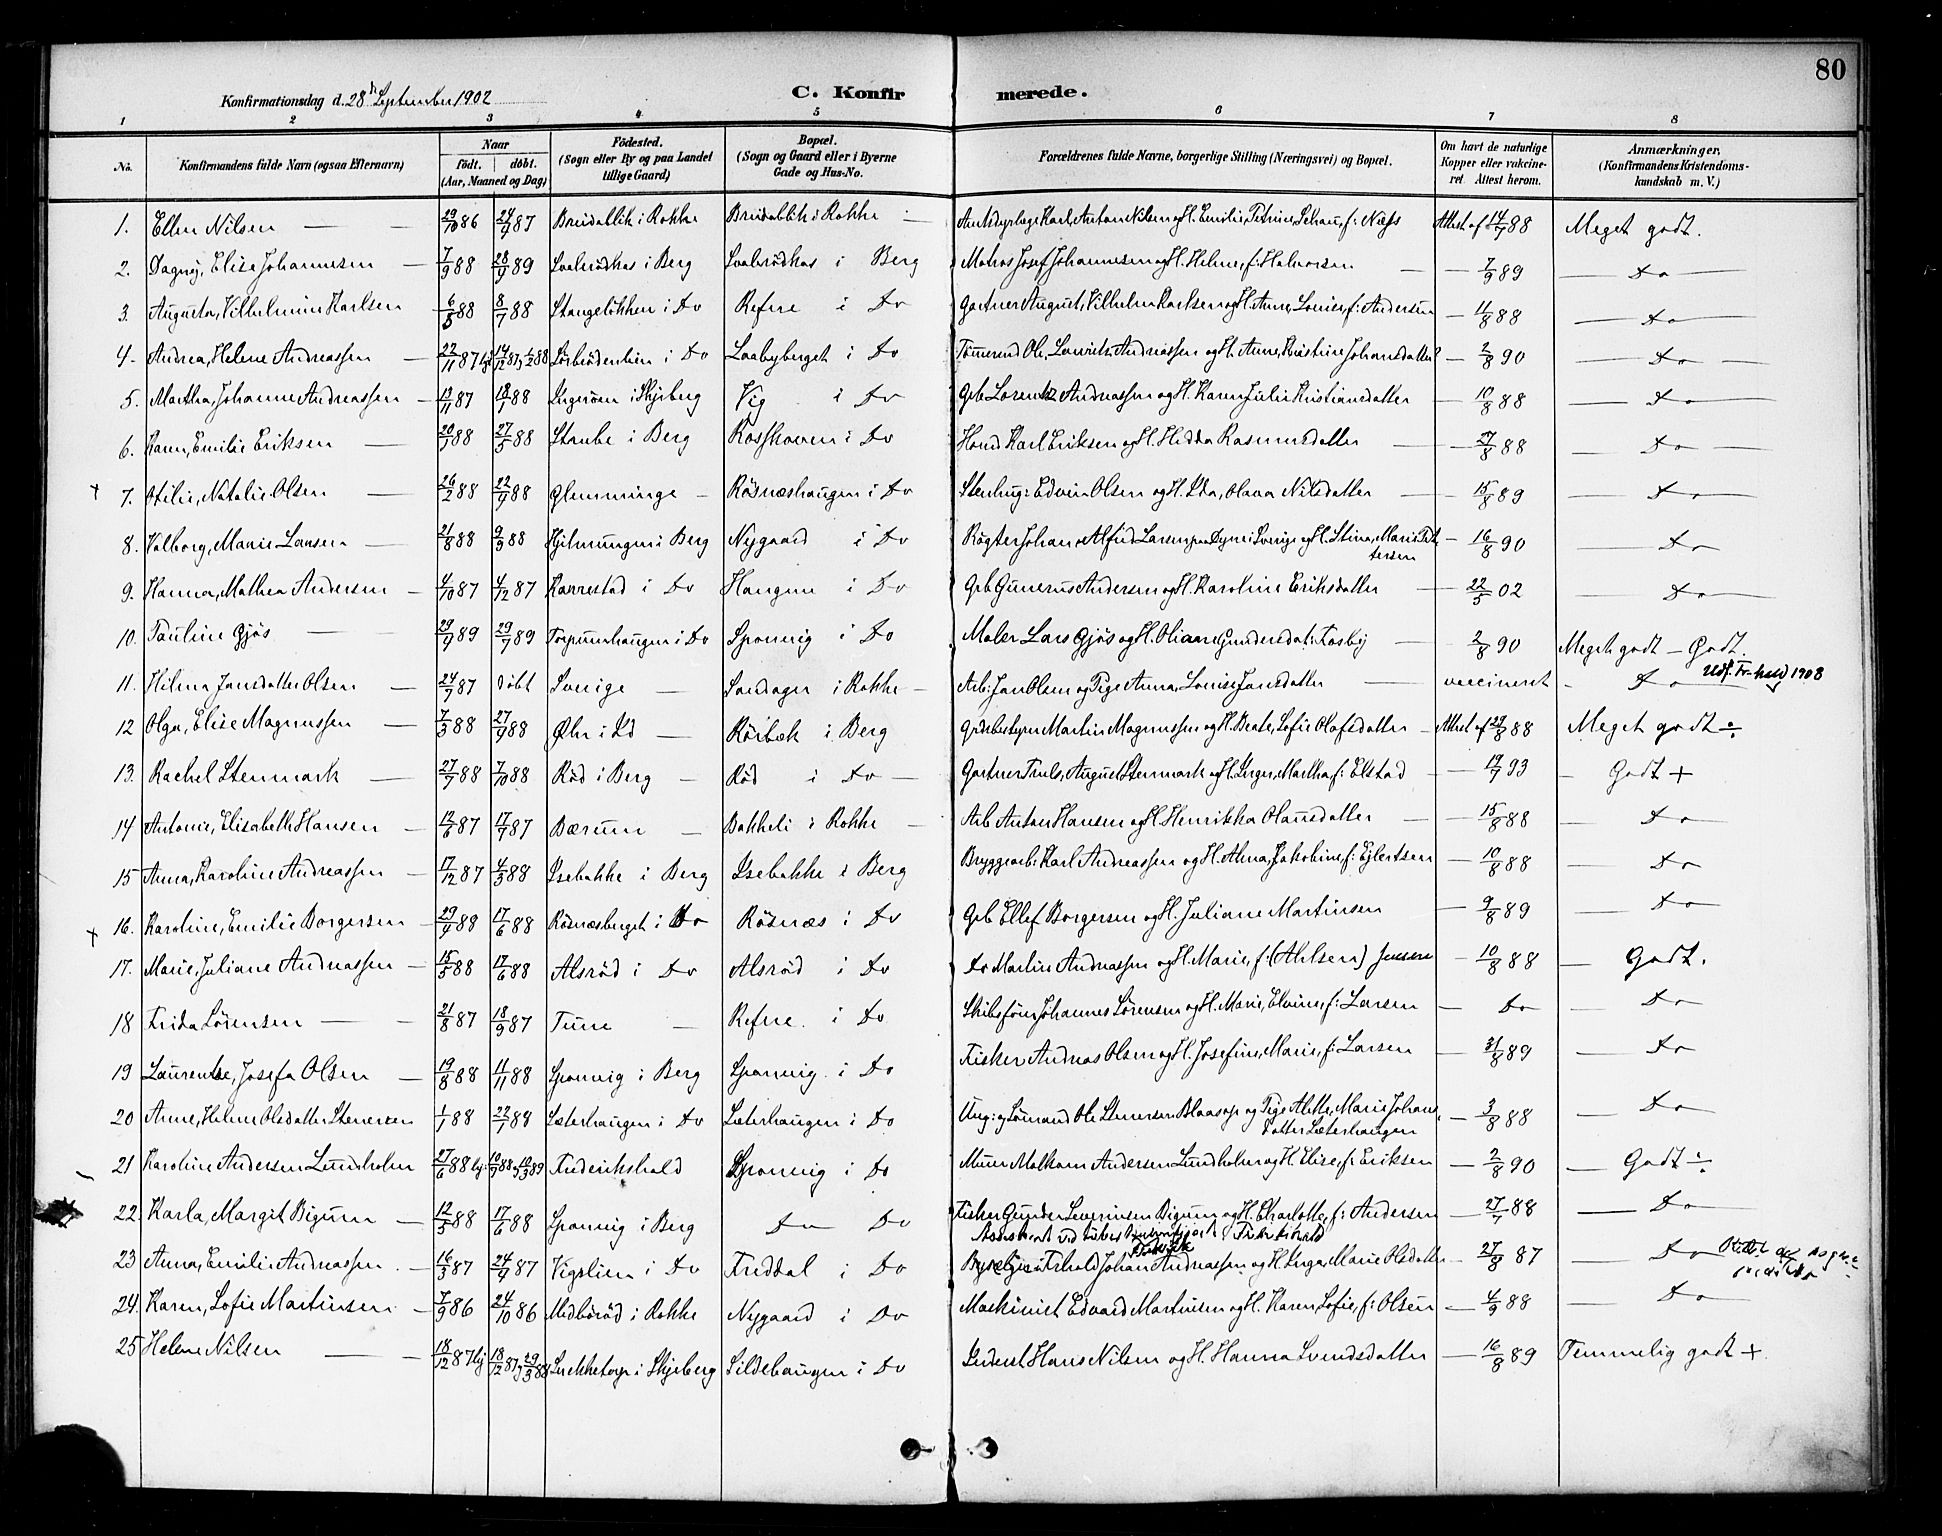 80
Konfirmationsdag d. 28 September 1902
C. Konfirmerede.
1 2 3 4 5 6 7 8
No. Konfirmandens fulde Navn (ogsaa Efternavn) Naar födt. döbt. (Aar, Maaned og Dag) Födested. (Sogn eller By og paa Landet tillige Gaard) Bopæl. (Sogn og Gaard eller i Byerne Gade og Hus-No. Forældrenes fulde Navne, borgerlige Stilling (Næringsvei) og Bopæl. Om havt de naturlige Kopper eller vakcineret. Attest herom. Anmærkninger. (Konfirmandens Kristendomskundskab m. V.)
1. Ellen Nilsen 29/10 86 24/9 87 Breidablik i Rokke Breidablik i Rokke Karl, Anton Nilsen og H. Emilie, Petrine f: Næss Attest af 14/7 88 Meget godt.
2. Dagny, Elise Johannesen 7/9 88 28/9 89 i Berg i Berg Matros Josef Johannesen og H. Helene, f: Halvorsen 7/9 89 Do
3. Augusta, Vilhelmine Karlsen 6/5 88 8/7 88 Stangeløkken i Do Refne i Do Gartner August, Vilhelm Karlsen og H. Anne, Lovise, f: Andersen 11/8 88 Do
4. Andrea, Helene Andreassen 22/11 87 hj 14/12 87 i Do Laabyberget i Do Tømmerm Ole, Lauritz Andreassen og H. Anne, Kristine Johansdatter 2/8 90 Do
5. Martha, Johanne Andreassen 13/11 87 88 Ingerøen i Skjeberg Vig i Do Grb Lorentz Andreassen og H. Karen Julie Kristiansdatter 10/8 88 Do
6. Karen, Emilie Eriksen 20/1 88 27/3 88 Strube i Berg i Do Karl Eriksen og H. Hedda Rasmusdatter 27/8 88 Do
7. Otilie, Natalie Olsen 26/2 88 22/9 88 Glemminge Røsnæshaugen i Do Stenhug: Edvin Olsen og H. Ida, Olava Nilsdatter 15/8 89 Do
8. Valborg, Marie Larsen 21/8 88 9/3 88 i Berg Nygaard i Do Røgter Johan Alfred Larsen i Sverige og H. Stina, Marie Pettersen 16/8 90 Do
9. Hanna, Mathea Andersen 4/10 87 4/12 87 i Do Haugen i Do Grb Gunerus Andersen og H. Karoline Eriksdatter 22/5 02 Do
10. Pauline Gjøs 29/9 89 Torpumhaugen i Do Sponvig i Do Maler Lars Gjøs og H. Oliane Gundersdat: Tosby 2/8 90 Meget godt — Godt.
11. Hilma Jansdatter Olsen 24/7 87 døbt Sverige i Rokke Arb: Jan Olsen og Pige Anna, Lovise Jansdatter vaccineret Do 1908
12 Olga, Elise Magnussen 7/3 88 27/9 88 Øhr i Id Rørbæk i Berg Grdsbestyrer Martin Magnussen og H. Beate, Sofie Olafsdatter Attest af 29/8 88 Meget godt ÷
13. Rachel Stenmark 27/7 88 7/10 88 Rød i Berg Rød i Do Gartner Truls, August Stenmark og H. Inger, Martha f: Elstad 19/7 93 Godt +
14 Antonie, Elisabeth Hansen 12/6 87 17/7 87 Bærum Bakkeli i Rokke Arb Anton Hansen og H Henrikka Olausdatter 15/8 88 Do
15 Anna, Karoline Andreassen 17/12 87 4/3 88 Isebakke i Berg Isebakke i Berg Bryggearb: Karl Andreassen og H. Alma, Jakobine, f: Ejlertsen 10/8 88 Do
16. Karoline, Emilie Borgersen 29/4 88 17/6 88 Røsnæsberget i Do Røsnæs i Do Grb Ellef Borgersen og H. Juliane Martinsen 9/8 89 Do
17. Marie, Juliane Andreassen 15/5 88 17/6 88 Alsrød i Do Alsrød i Do Do Martin Andreassen og H. Marie, f: (Ahlsen) Jensen 10/8 88 Godt.
18 Frida Sørensen 21/8 87 18/9 87 Tune Refne i Do Skibsfører Johannes Sørensen og H. Marie, Elvine, f: Larsen Do Do
19 Laurentze, Josefa Olsen 19/8 88 11/11 88 Sponvig i Berg Sponvig i Do Fisker Andreas Olsen og H. Josefine, Marie, f: Larsen 31/8 89 Do
20 Anne, Helene Olsdatter Stenersen 1/1 88 22/7 88 Sæterhaugen i Do Sæterhaugen i Do Ung: og Sømand Ole Stenersen Blaasop og Pige Alette, Marie Johansdatter Sæterhaugen 3/8 88 Do
21 Karoline Andersen Lundholm 27/6 88 hj: Frederikshald Sponvig i Do Murer Malkom Andersen Lundholm og H. Elise, f: Eriksen 2/8 90 Godt ÷
22. Karla, Margit Bigum 12/5 88 17/6 88 Sponvig i Berg Do Do Fisker Gunder Severinsen Bigum og H. Charlotte, f: Andersen 27/7 88 Do
23 Anna, Emilie Andreassen 16/3 87 24/4 87 Vigslien i Do Freddal i Do Johan Andreassen og H. Inga, Marie Olsdatter 27/8 87 Do
24. Karen, Sofie Martinsen 7/9 86 24/10 86 Midbørød i Rokke Nygaard i Do Maskinist Edvard Martinsen og H. Karen, Sofie, f: Olsen 4/9 88 Do
25 Helene Nilsen 18/12 87 hj 18/12 87 i Skjeberg Sildehaugen i Do Hans Nilsen og H. Hanna Svendsdatter 16/8 89 Temmelig godt +